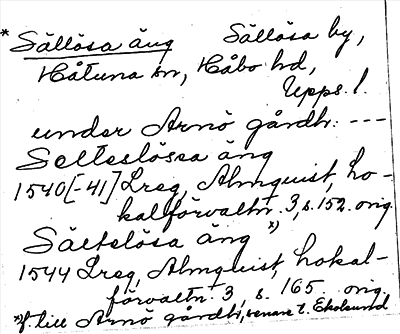 * Sällösa äng Sällösa by,
Håtuna sn, Håbo hd,
Upps. l.
under Arnö gårdh: ---
Selteslössa äng
1540[-41] Lreg, Almquist, Lo-
kalförvaltn. 3, s. 152. orig
Säetelösa äng x)
1544 Lreg, Almquist, Lokal-
förvaltn. 3, s. 165. orig.
x) f. till Arnö gårdh, senare t. Ekolsund